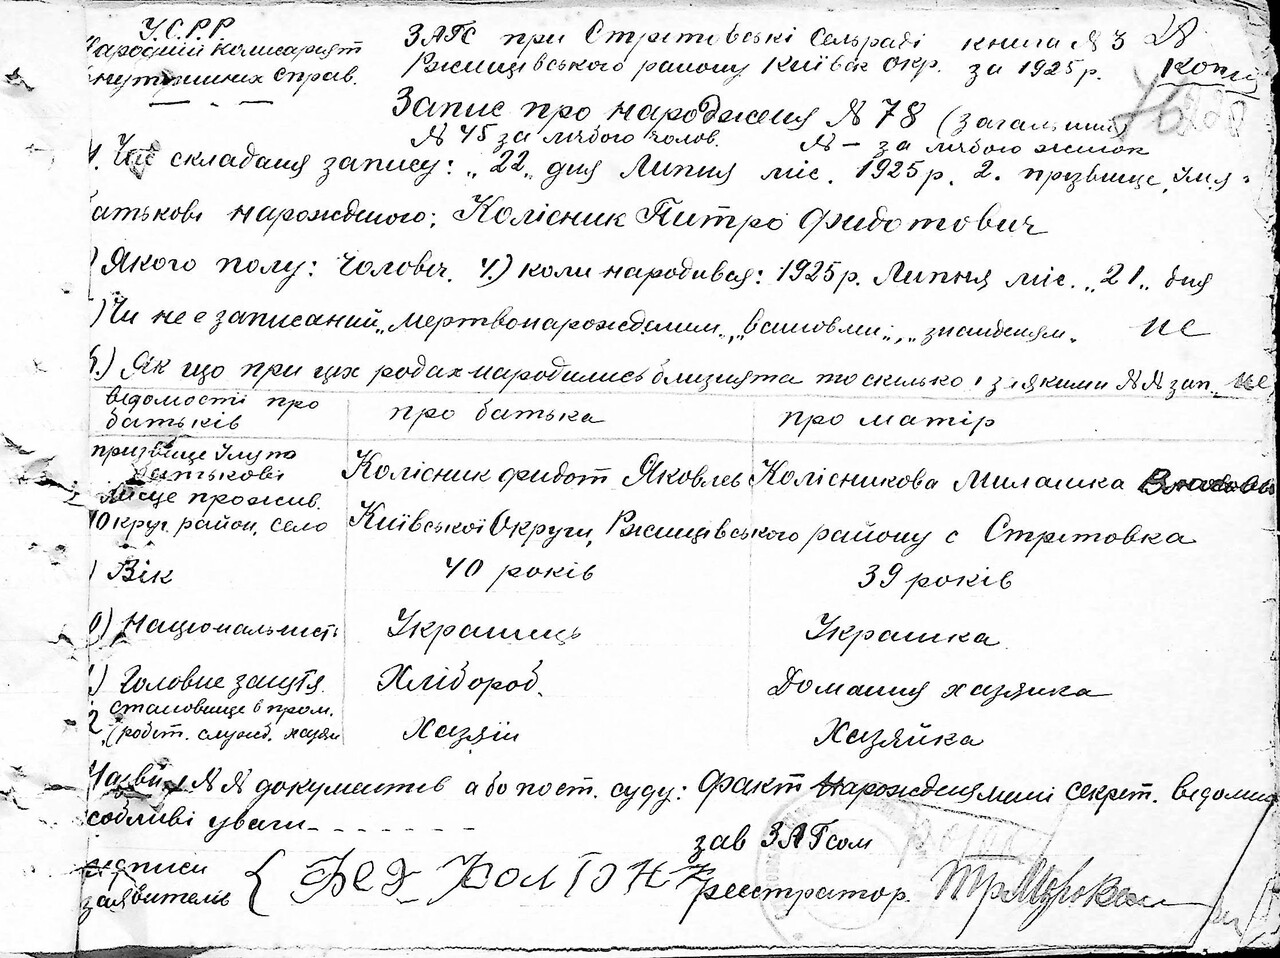 У.С.Р.Р.
Народній комисаріят
внутрішних справ.
ЗАГС при Стрітовські Сельраді книга № 3
Ржищівського району Київськ Окр. за 1925 р.
28
копія
Запис про народження № 78 (загальний)
№ 45 за любого чолов. № — за любого жінок
1. Час складання запису: „22„ дня Липня міс. 1925 р. 2. прізвище, имя,
батькові народженого: Колісник Питро Фидотович
) Якого полу: Чоловіч. 4.) коли народився: 1925 р. Липня міс. „21„ дня
) Чи не є записаний „мертвонарожденим„, „ „знайденям„ не
6.) Як що при цих родах народились близнята то скілько і з якими №№ зап. не
відомості про батьків
про батька
про матір
призвище имя по батькові
Колісник Фидот Яковлев
Колісникова Милашка
місце прожив.
10 округ. район, село
Київської Округи, Ржищівського району с Стрітовка
) Вік
40 років
39 років
0) Національність
Українець
Українка
1) Головне заняття
Хлібороб.
Домашня хазяйка
2 становище в пром.
(робот. служб. хазяїн
Хазяїн
Хазяйка
Назви №№ документів або пост. суду: Факт Народження мині секрет. відомий
собливі уваги - - - - - - - -
підписи
заявителів { Фед Колісник
зав ЗАГСом
реєстратор.